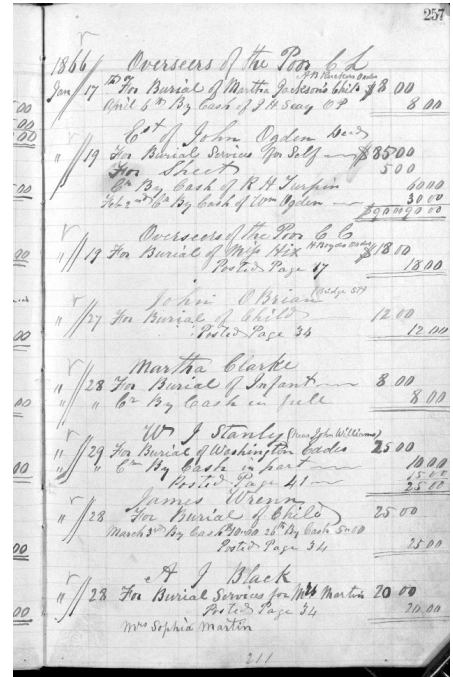 257
1866 Overseers of the Poor C L
A B Ruckers Order
Jan 17 To For Burial of Martha Jacksons Child $8 00
April 6th By Cash of J H Seay O P 8 00
Est of John Ogden Decd
" 19 For Burial Services for Self $85 00
For Sheet 5 00
Cr By Cash of R H Turpin 60 00
Feb 2nd Cr By Cash of Wm Ogden 30 00
$90 00 90 00
Overseers of the Poor C C
" 19 For Burial of Miss Hix $18 00
Posted Page 17 18 00
John O Brian
(Bridge St)
" 27 For Burial of Child 12 00
Posted Page 34 12 00
Martha Clarke
" 28 For Burial of Infant 8 00
" " Cr By Cash in full 8 00
W J Stanly (near John Williams)
" 29 For Burial of Washington Eades 25 00
" " Cr By Cash in part 10 00
Posted Page 41 15 00
25 00
James Wrenn
" 28 For Burial of Child 25 00
March 3rd By Cash 26th By Cash 5 00
Posted Page 34 25 00
A J Black
" 28 For Burial Services for Mrs Martin 20 00
Posted Page 34 20 00
Mrs Sophia Martin
211